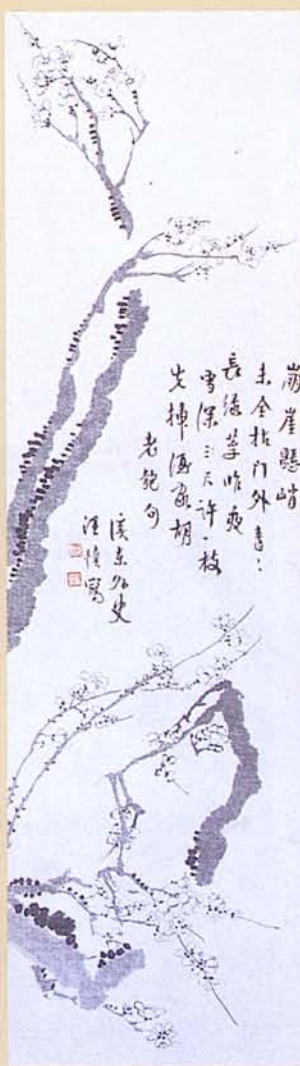 崖懸峭
未全枯门外青:
長綠草昨夜
雪深三尺許一枝
先插酒家胡
老鲍句
溪东外史
汪慎寫